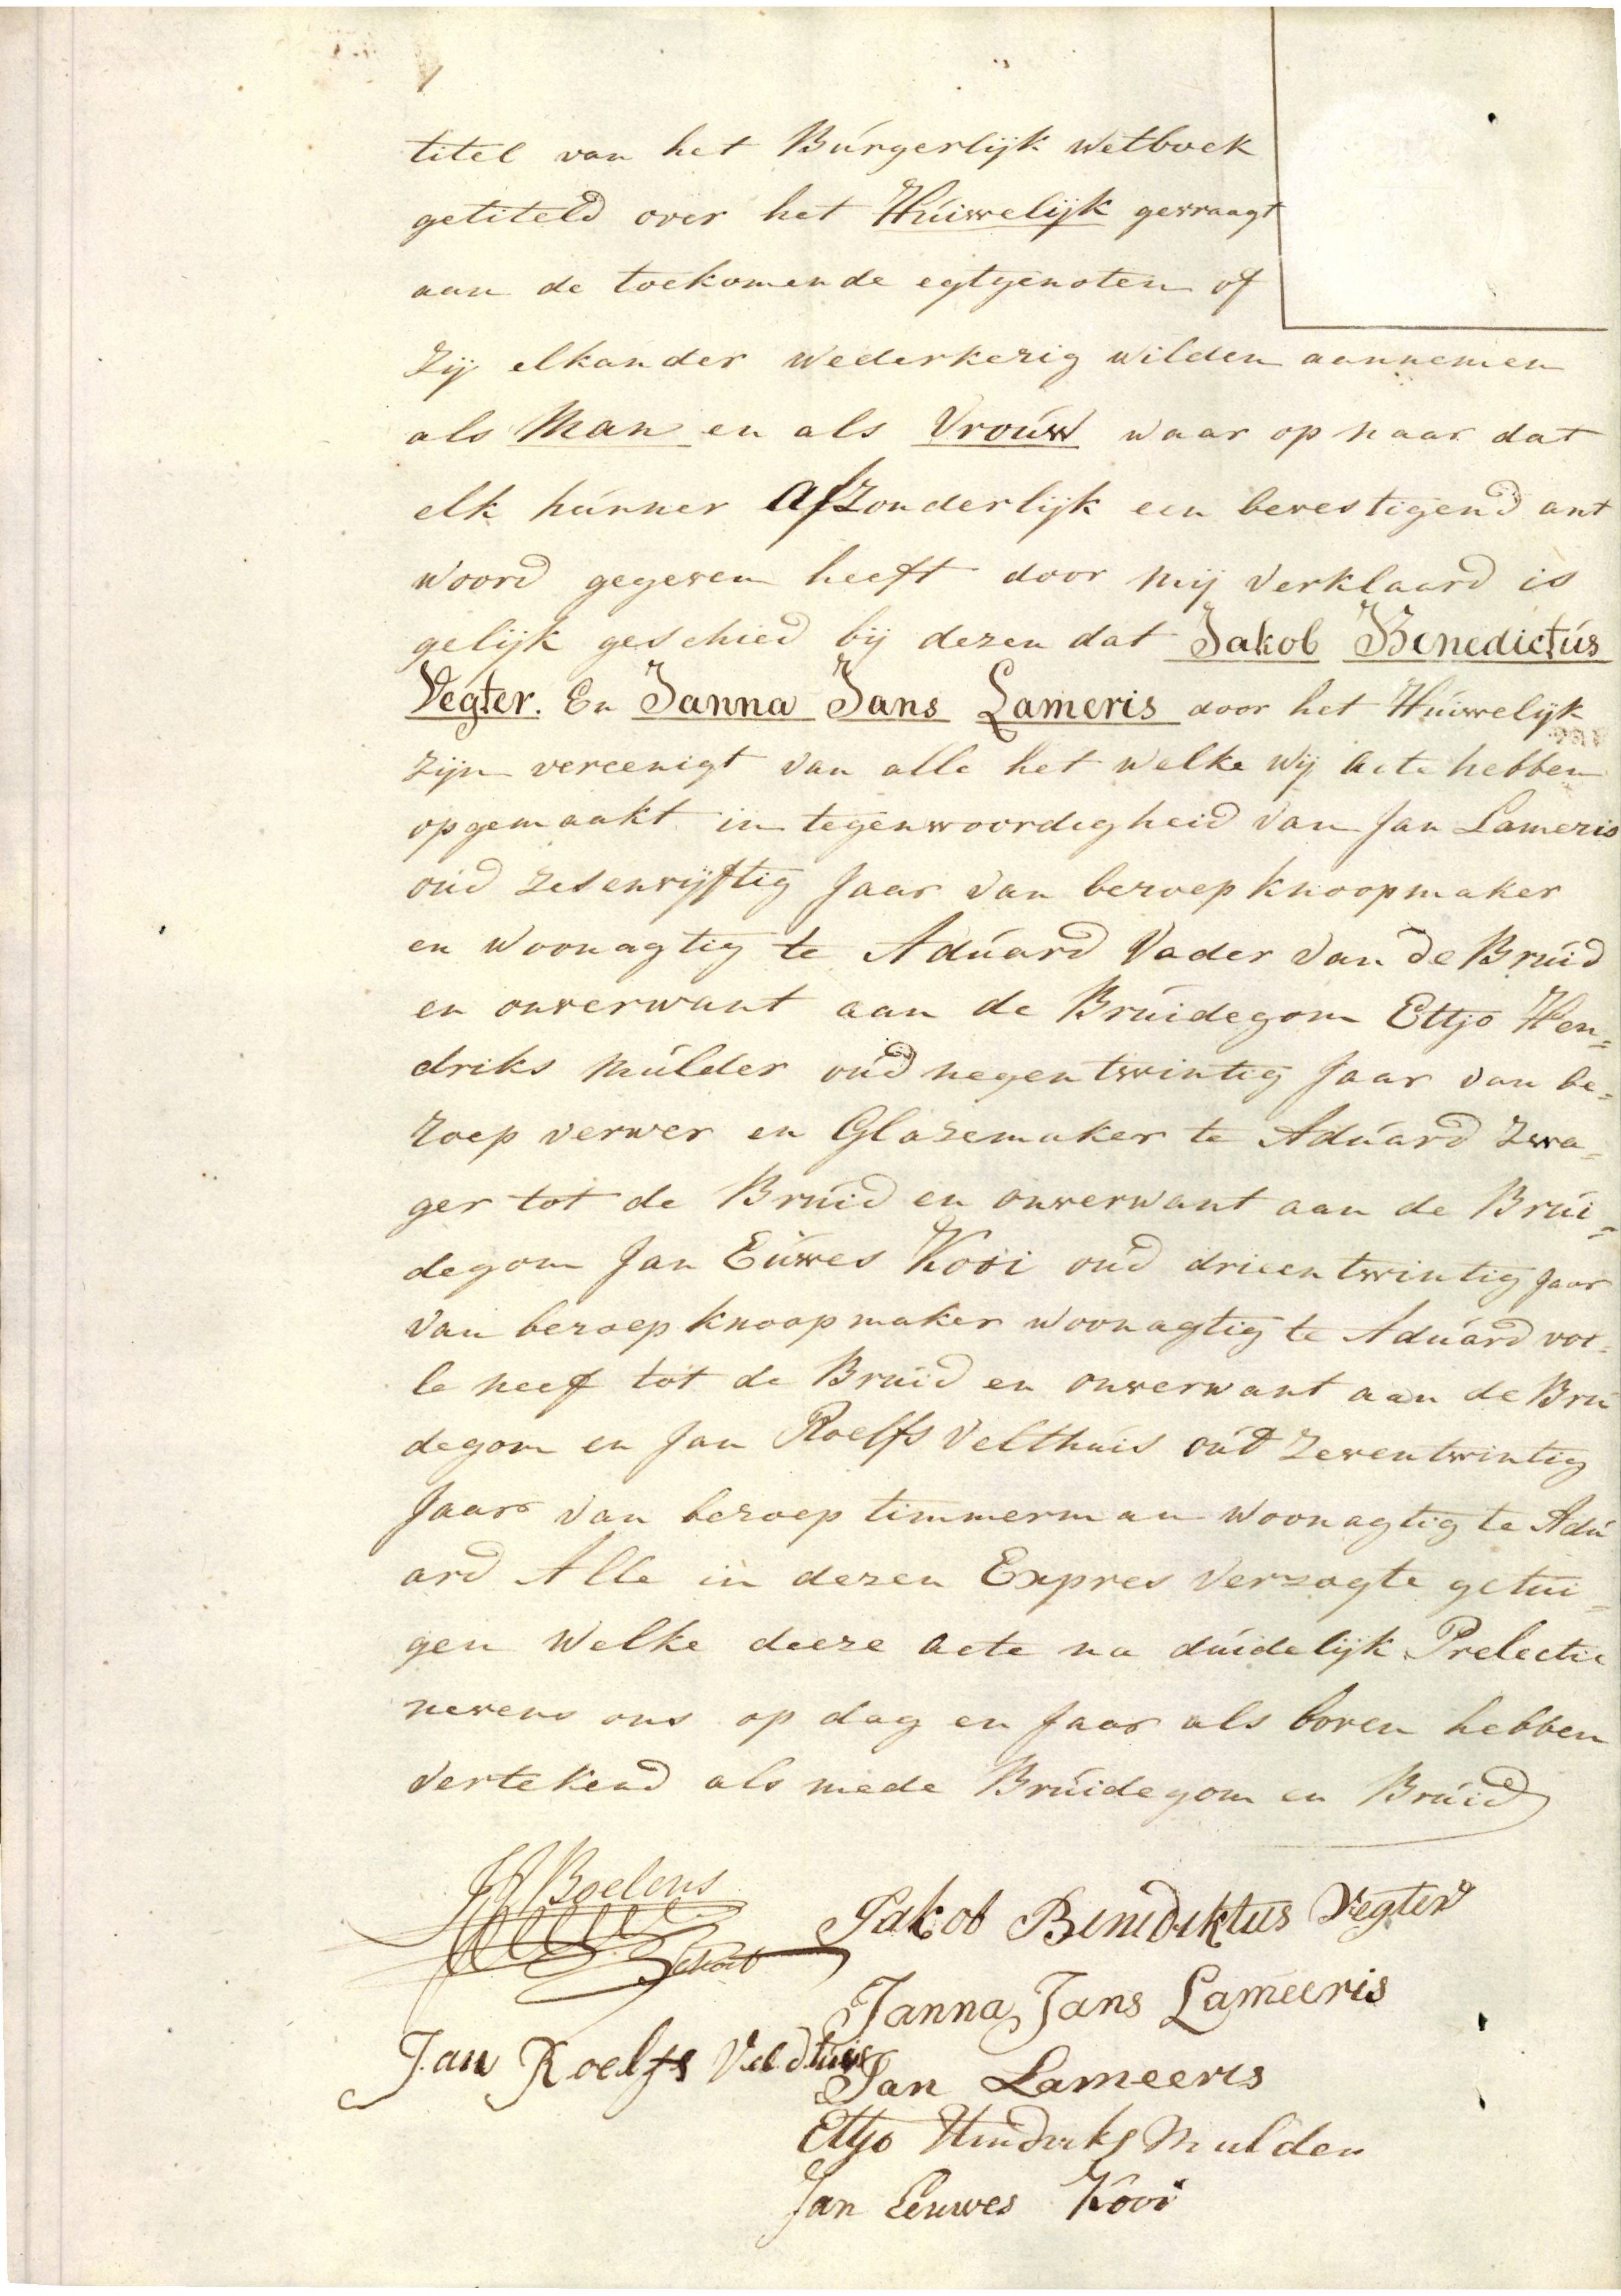 titel van het Búrgerlijk wetboek
getiteld over het Húiwelijk gevraagt
aan de toekomende egtgenoten of
Zij elkander wederkerig wilden aannemen
als Man en als Vroúw waar op naar dat
elk húnner Afzonderlijk een bevestigend ant
woord gegeven heeft door mij verklaard is
gelijk geschied bij dezen dat Jakob Benedictús
Vegter. En Janna Jans Lameris door het Húiwelijk
zijn vereenigt van alle het welke wij Acte hebben
opgemaakt in tegenwoordigheid van Jan Lameris
oúd zesenvijftig Jaar van beroep knoopmaker
en woonagtig te Adúard Vader van de Brúid
en onverwant aan de Brúidegom Ettjo Hen=
driks Múlder oúd negentwintig Jaar van be=
roep verwer en Glazemaker te Adúard Zwa=
ger tot de Brúid en onverwant aan de Brúi=
degom Jan Eúwes Kooi oúd drieentwintig Jaar
van beroep knoopmaker woonagtig te Adúard vol=
le neef tot de Brúid en onverwant aan de Brú
degom en Jan Roelfs Velthúis oúd zeventwintig
Jaar van beroep timmerman woonagtig te Adú
ard Alle in dezen Expres verzogte getúi=
gen welke deeze acte na dúidelijk Prelectie
nevens ons op dag en Jaar als boven hebben
vertekend als mede Brúidegom en Brúid
Boelens
Jakob Benidiktus Vegter
Schout
Janna Jans Lameeris
Jan Roelfs Veldhuis
Jan Lameeris
Ettjo Hindriks Mulder
Jan Eeuwes Kooi